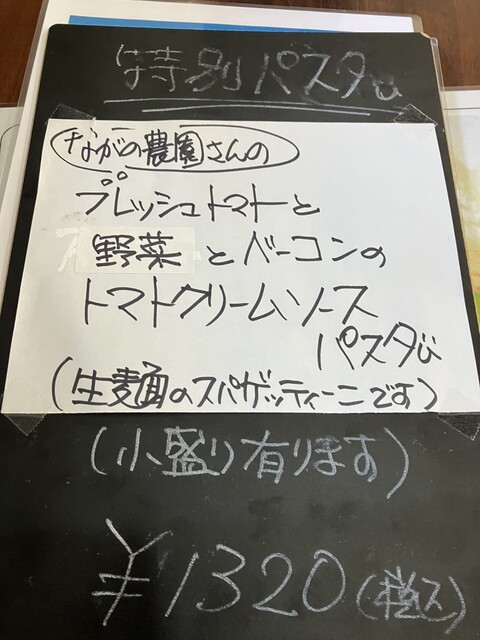 特別パスタ
ながの農園さんの
フレッシュトマトと
野菜とベーコンの
トマトクリームソース
パスタ
(生麺のスパゲッティーニです)
(小盛り有ります)
¥1320(税込)